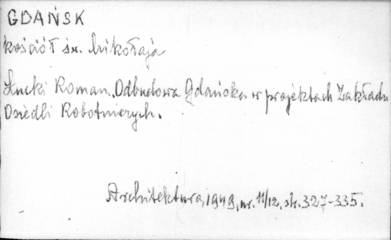 GDAŃSK
kościół św. Mikołaja
Łucki Roman. Odbudowa Gdańska w projektach Zakładu
Osiedli Robotniczych.
Architektura, 1949, nr. 11/12, str. 327-335.